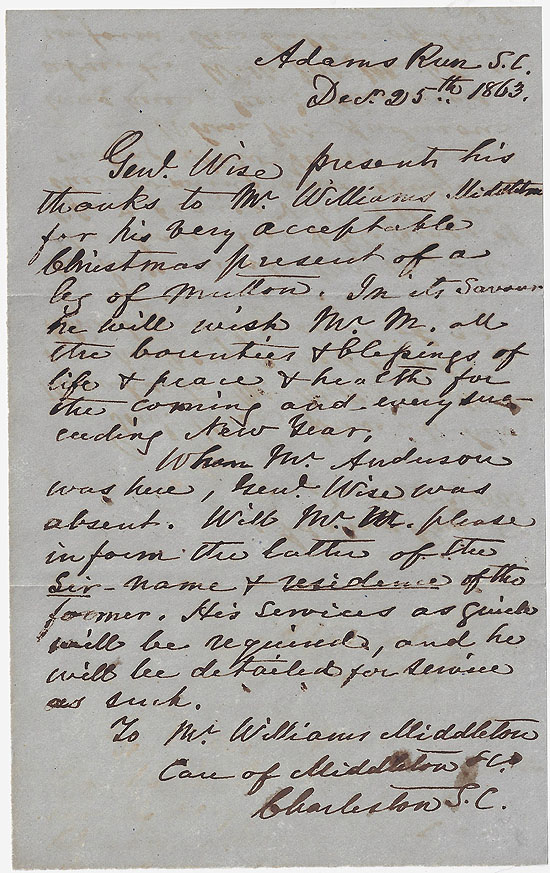 Adams Run S.C.
Decr. 25th. 1863.
Genl. Wise presents his
thanks to Mr. Williams Middleton
for his very acceptable
Christmas present of a
leg of mutton. In its savour
he will wish Mr. M. all
the bounties & blessings of
life & peace & health for
the coming and every suc-
ceeding New Year.
When Mr. Anderson
was here, Genl. Wise was
absent. Will Mr. M. please
inform the latter of the
Sir-name & residence of the
former. His services as guide
will be required, and he
will be detailed for service
as such.
To Mr. Williams Middleton
Care of Middleton & Co
Charleston S.C.